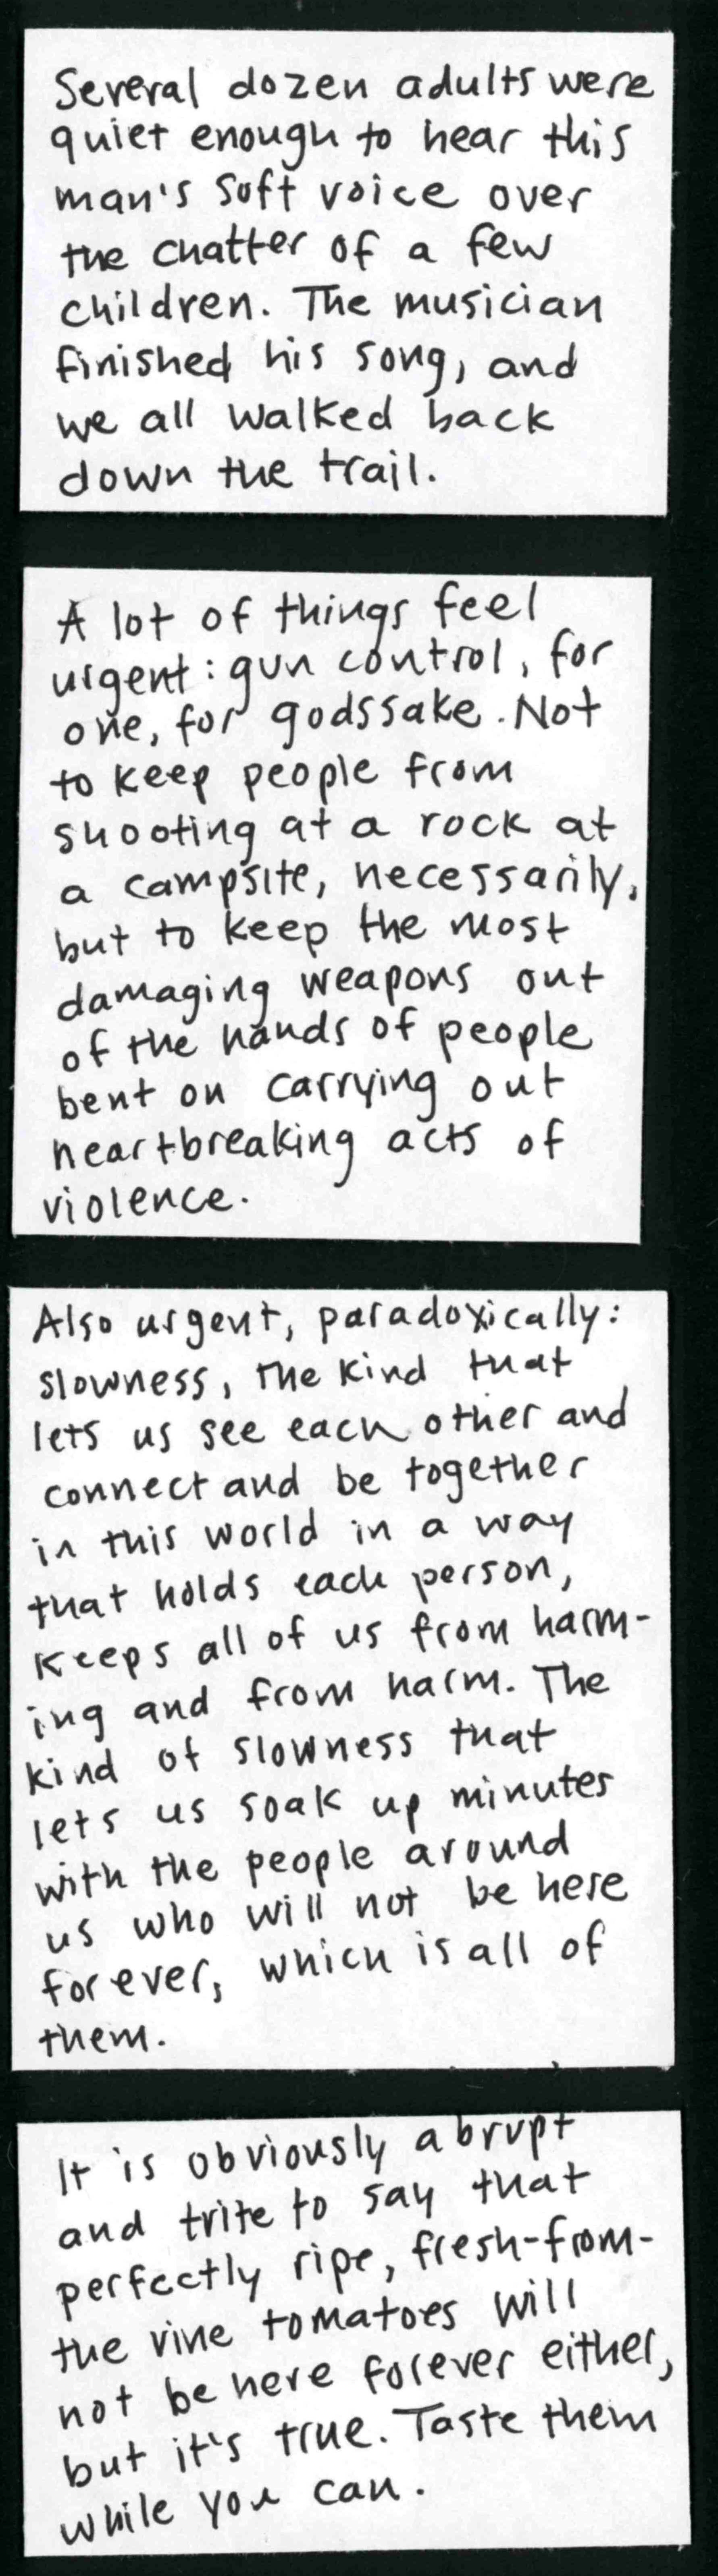 Several dozen adults were
quiet enough to hear this
man's soft voice over
the chatter of a few
children. The musician
finished his song, and
we all walked back
down the trail.
A lot of things feel
urgent: gun control, for
one, for godssake. Not
to keep people from
shooting at a rock at
a campsite, necessarily,
but to keep the most
damaging weapons out
of the hands of people
bent on carrying out
heartbreaking acts of
violence.
Also urgent, paradoxically:
slowness, the kind that
lets us see each other and
connect and be together
in this world in a way
that holds each person,
keeps all of us from harm-
ing and from harm. The
kind of slowness that
lets us soak up minutes
with the people around
us who will not be here
forever, which is all of
them.
It is obviously abrupt
and trite to say that
perfectly ripe, fresh-from-
the vine tomatoes will
not be here forever either,
but it's true. Taste them
while you can.